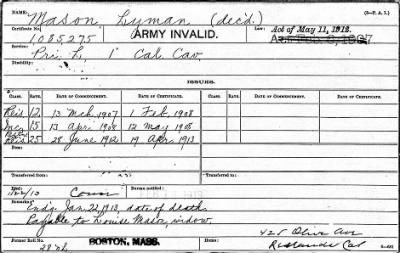 NAME: Mason Lyman (dec'd.) (3—P. A. I.)
Certificate No. 1085275 ARMY INVALID. Law: Act of May 11, 1912.
Service: Pri. L. 1" Cal. Cav.
Disability:
ISSUES.
CLASS. RATE. DATE OF COMMENCEMENT. DATE OF CERTIFICATE. CLASS. RATE. DATE OF COMMENCEMENT. DATE OF CERTIFICATE.
Reis 12 13 Mch. 1907 1 Feb. 1908
Inc 15 13 Apr. 1908 12 May 1908
Reis 25 28 June 1912 19 Apr. 1913
From:
Transferred to: Transferred from:
Died:
Remarks: Endg. Jan. 22, 1913, date of death.
Payable to Louise Mason, widow.
425 Olive Ave
Redlands Cal
Former Roll No. BOSTON, MASS. Home: